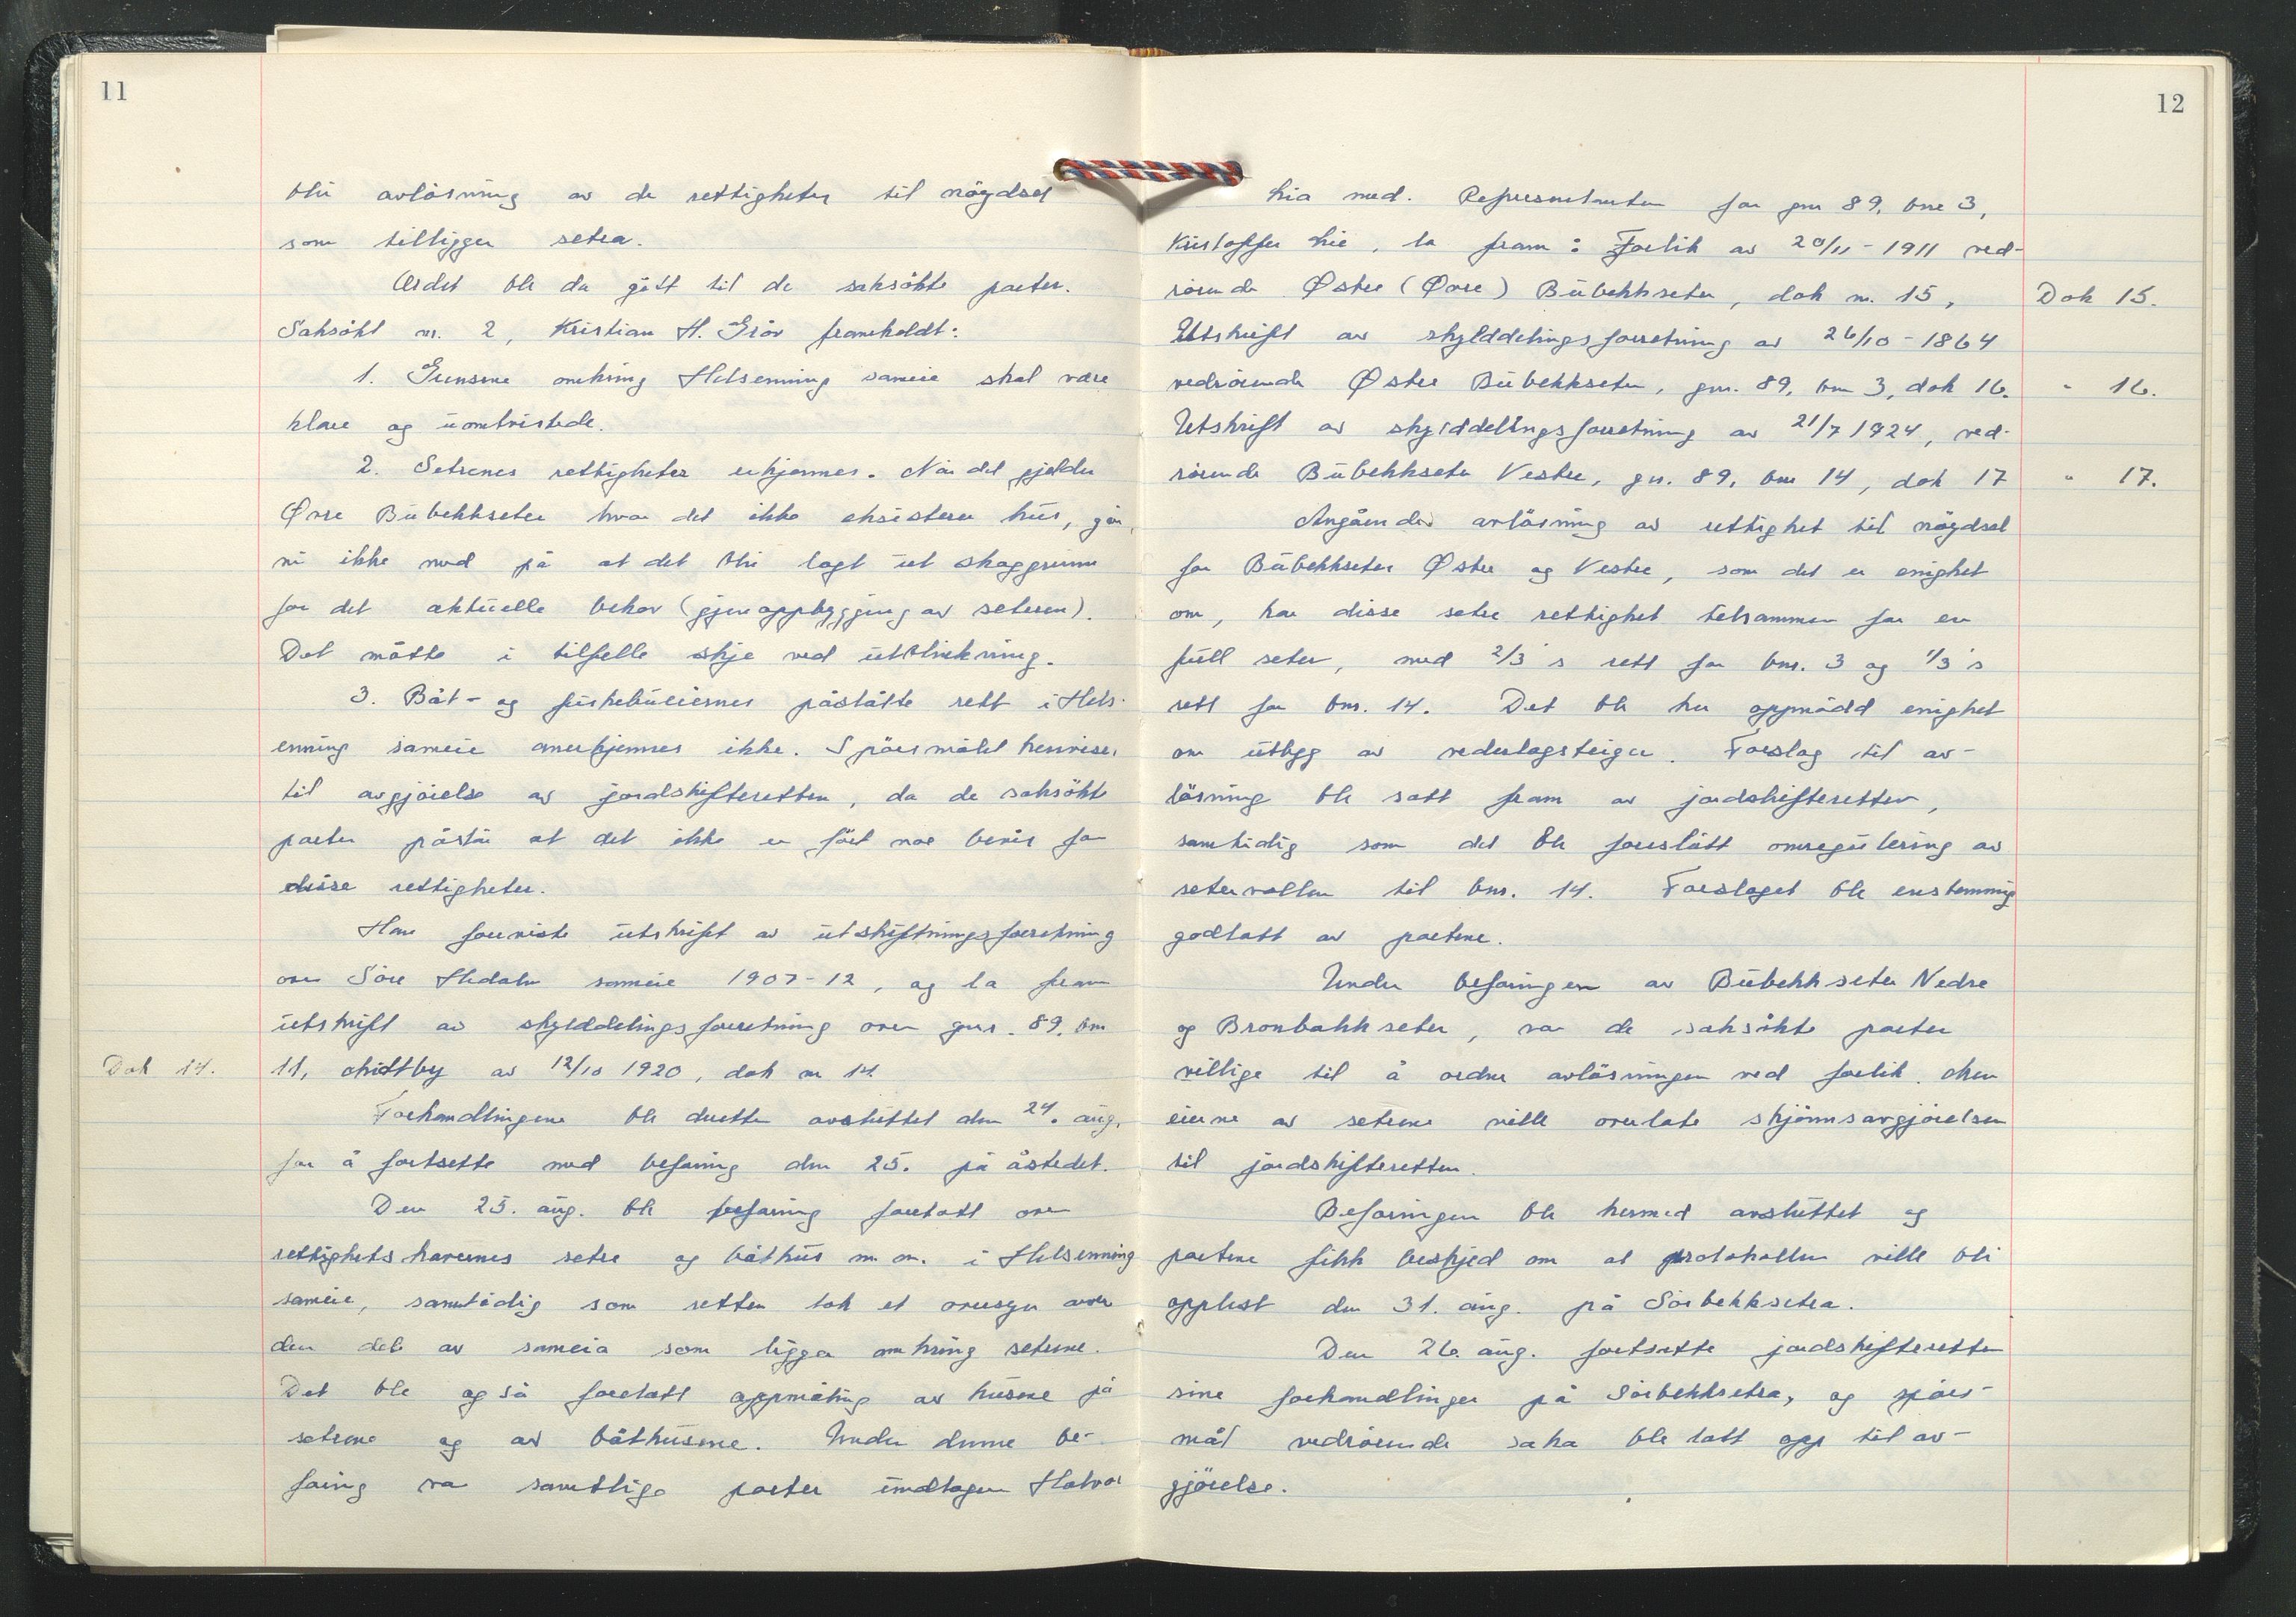 11
bli avlösning av de rettigheter til nögdsel
som tilligger setra.
Ordet ble da gitt til de saksökte parter.
Saksökt nr. 2, Kristian H. Gröv framholdt:
1. Grensene omkring Helsenning sameie skal være
klare og uomtvistede.
2. Setrenes rettigheter erkjennes. Når det gjelder
Övre Bubekkseter hvor det ikke eksisterer hus, går
vi ikke med på at det blir lagt ut skoggrunn
for det aktuelle behov (gjenoppbygging av seteren).
Det måtte i tilfelle skje ved utblinkning.
3. Båt- og fiskebueiernes påståtte rett i Hels-
enning sameie anerkjennes ikke. Spörsmålet henvises
til avgjörelse av jordskifteretten, da de saksökte
parter påstår at det ikke er fört noe bevis for
disse rettigheter.
Han foreviste utskrift av utskiftningsforretning
over Söre Hedalen sameie 1907-12, og la fram
utskrift av skylddelingsforretning over gnr. 89, bnr
Dok 14.
11, Midtby av 12/10 1920, dok nr 14.
Forhandlingene ble deretter avsluttet den 24. aug.
for å fortsette med befaring den 25. på åstedet.
Den 25. aug. ble befaring foretatt over
rettighetshavernes setre og båthus m.m. i Helsenning
sameie, samtidig som retten tok et oversyn over
den del av sameia som ligger omkring setrene.
Det ble også foretatt oppmåling av husene på
setrene og av båthusene. Under denne be-
faring var samtlige parter unntagen Halvor
12
Lia med. Representanten for gnr 89, bnr 3,
Kristoffer Lie, la fram: Forlik av 20/11-1911 ved-
rörende Østre (Øvre) Bubekkseter, dok nr. 15,
Dok 15.
Utskrift av skylddelingsforretning av 26/10-1864
vedrörende Østre Bubekkseter, gnr. 89, bnr 3, dok 16.
" 16.
Utskrift av skylddelingsforretning av 21/7 1924, ved-
rörende Bubekkseter Vestre, gnr. 89, bnr 14, dok 17
" 17.
Angående avlösning av rettighet til nögdsel
for Bubekkseter Østre og Vestre, som det er enighet
om, har disse setre rettighet tilsammen for en
full seter, med 2/3's rett for bnr. 3 og 1/3's
rett for bnr. 14. Det ble her oppnådd enighet
om utlegg av vederlagsteiger. Forslag til av-
lösning ble satt fram av jordskifteretten,
samtidig som det ble foreslått omregulering av
setervollen til bnr. 14. Forslaget ble enstemmig
godtatt av partene.
Under befaringen av Bubekkseter Nedre
og Bronbakkseter, var de saksökte parter
villige til å ordne avlösningen ved forlik. Men
eierne av setrene ville overlate skjönnsavgjörelsen
til jordskifteretten.
Befaringen ble hermed avsluttet og
partene fikk beskjed om at protokollen ville bli
opplest den 31. aug. på Sörbekksetra.
Den 26. aug. fortsatte jordskifteretten
sine forhandlinger på Sörbekksetra, og spörs-
mål vedrörende saka ble tatt opp til av-
gjörelse.